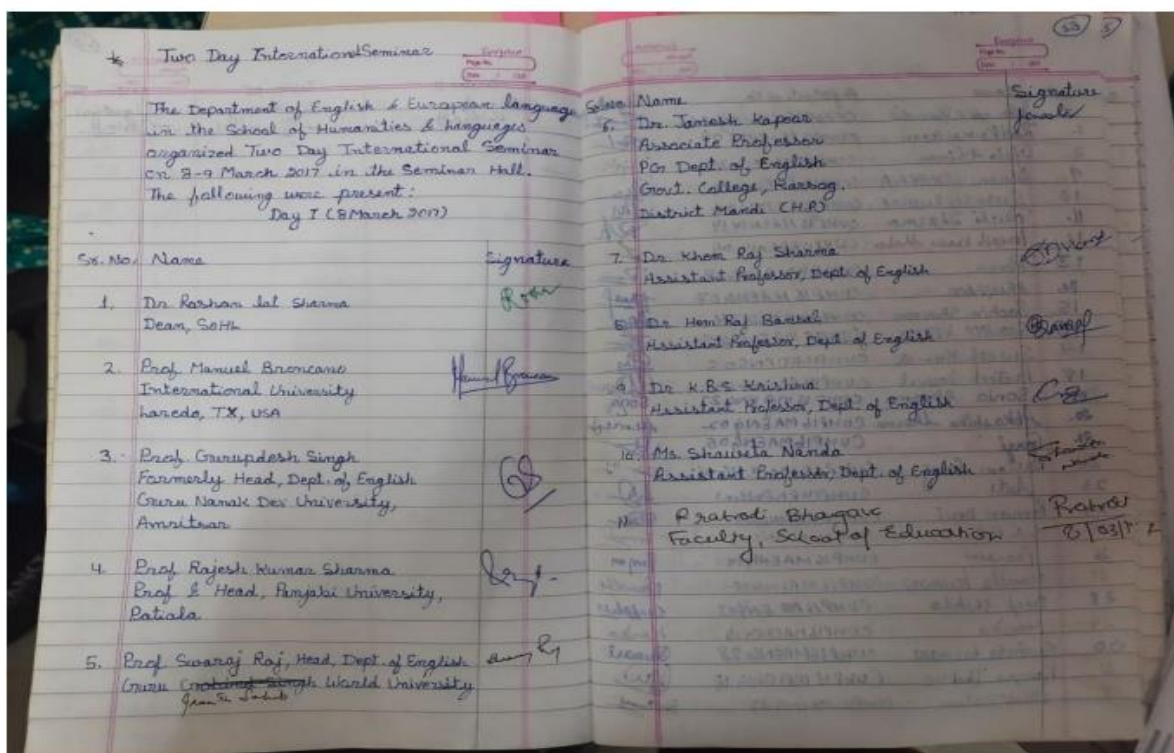 Two Day International Seminar
The Department of English & European language
in the School of Humanities & Languages
organized Two Day International Seminar
on 8-9 March 2017 in the Seminar Hall.
The following were present:
Day I (8 March 2017)
Sr. No. Name Signature
1. Dr Roshan Lal Sharma
Dean, SOHL
2. Prof Manuel Broncano
International University
Laredo, TX, USA
3. Prof Gurupdesh Singh
Formerly Head, Dept. of English
Guru Nanak Dev University,
Amritsar
4. Prof Rajesh Kumar Sharma
Prof & Head, Punjabi University,
Patiala
5. Prof Swaraj Raj, Head, Dept. of English
Guru Gobind Singh World University
Granth Sahib
53 5
Name Signature
6. Dr. Janesh Kapoor
Associate Professor
PG Dept. of English
Govt. College, Karsog.
District Mandi (H.P)
7. Dr Khem Raj Sharma
Assistant Professor, Dept of English
8. Dr Hem Raj Bansal
Assistant Professor, Dept of English
9. Dr K.B.S. Krishna
Assistant Professor, Dept of English
10. Ms. Shaweta Nanda
Assistant Professor, Dept. of English
11. Bhagavc
Faculty, School of Education